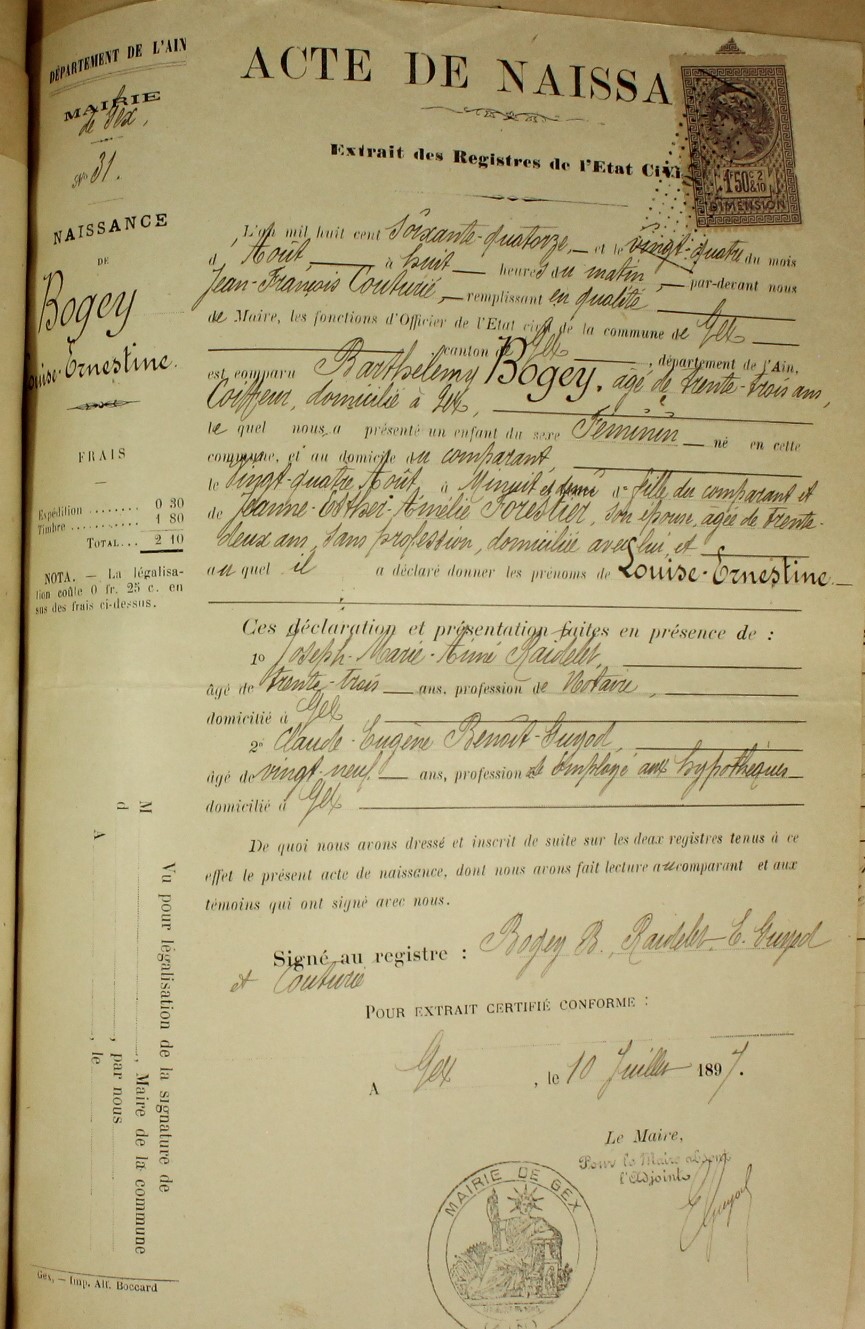 DÉPARTEMENT DE L'AIN
MAIRIE
de Gex,
N° 31.
NAISSANCE
DE
Bogey
Louise-Ernestine.
FRAIS
Expédition ....... 0 30
Timbre .......... 1 80
TOTAL... 2 10
NOTA. — La légalisa-
tion coûte 0 fr. 25 c. en
sus des frais ci-dessus.
ACTE DE NAISSA
Extrait des Registres de l'Etat Civi
1F50c 2 &10
DIMENSION
L'an mil huit cent Soixante-quatorze, — et le vingt-quatre du mois
d' Août, — à huit — heures du matin — par-devant nous
Jean-François Couturié, — remplissant en qualité
de Maire, les fonctions d'Officier de l'Etat civil de la commune de Gex —
canton de Gex —, département de l'Ain,
est comparu Barthelemy Bogey, agé de trente-trois ans,
Coiffeur, domicilié à Gex,
le quel nous a présenté un enfant du sexe Féminin — né en cette
commune, et au domicile du comparant
le Vingt-quatre Août, à Minuit et demi d fille du comparant et
de Jeanne-Esther-Amélie Forestier, son épouse, agée de trente-
deux ans, sans profession, domiciliée avec lui, et
au quel il a déclaré donner les prénoms de Louise-Ernestine —
Ces déclaration et présentation faites en présence de :
1° Joseph-Marie-Aimé Raidelet,
âgé de trente-trois — ans, profession de Notaire,
domicilié à Gex
2° Claude-Eugène Benoît-Guyod,
âgé de vingt-neuf — ans, profession d' employé aux hypothèques
domicilié à Gex
De quoi nous avons dressé et inscrit de suite sur les deux registres tenus à ce
effet le présent acte de naissance, dont nous avons fait lecture au comparant et aux
témoins qui ont signé avec nous.
Signé au registre : Bogey B., Raidelet, E. Guyod
et Couturié
POUR EXTRAIT CERTIFIÉ CONFORME :
A Gex, le 10 Juillet 1897.
Le Maire,
Pour le Maire absent
l'Adjoint
EGuyod
MAIRIE DE GEX
(AIN)
Vu pour légalisation de la signature de
M , Maire de la commune
d , par nous
A , le
Gex, — Imp. Alf. Boccard